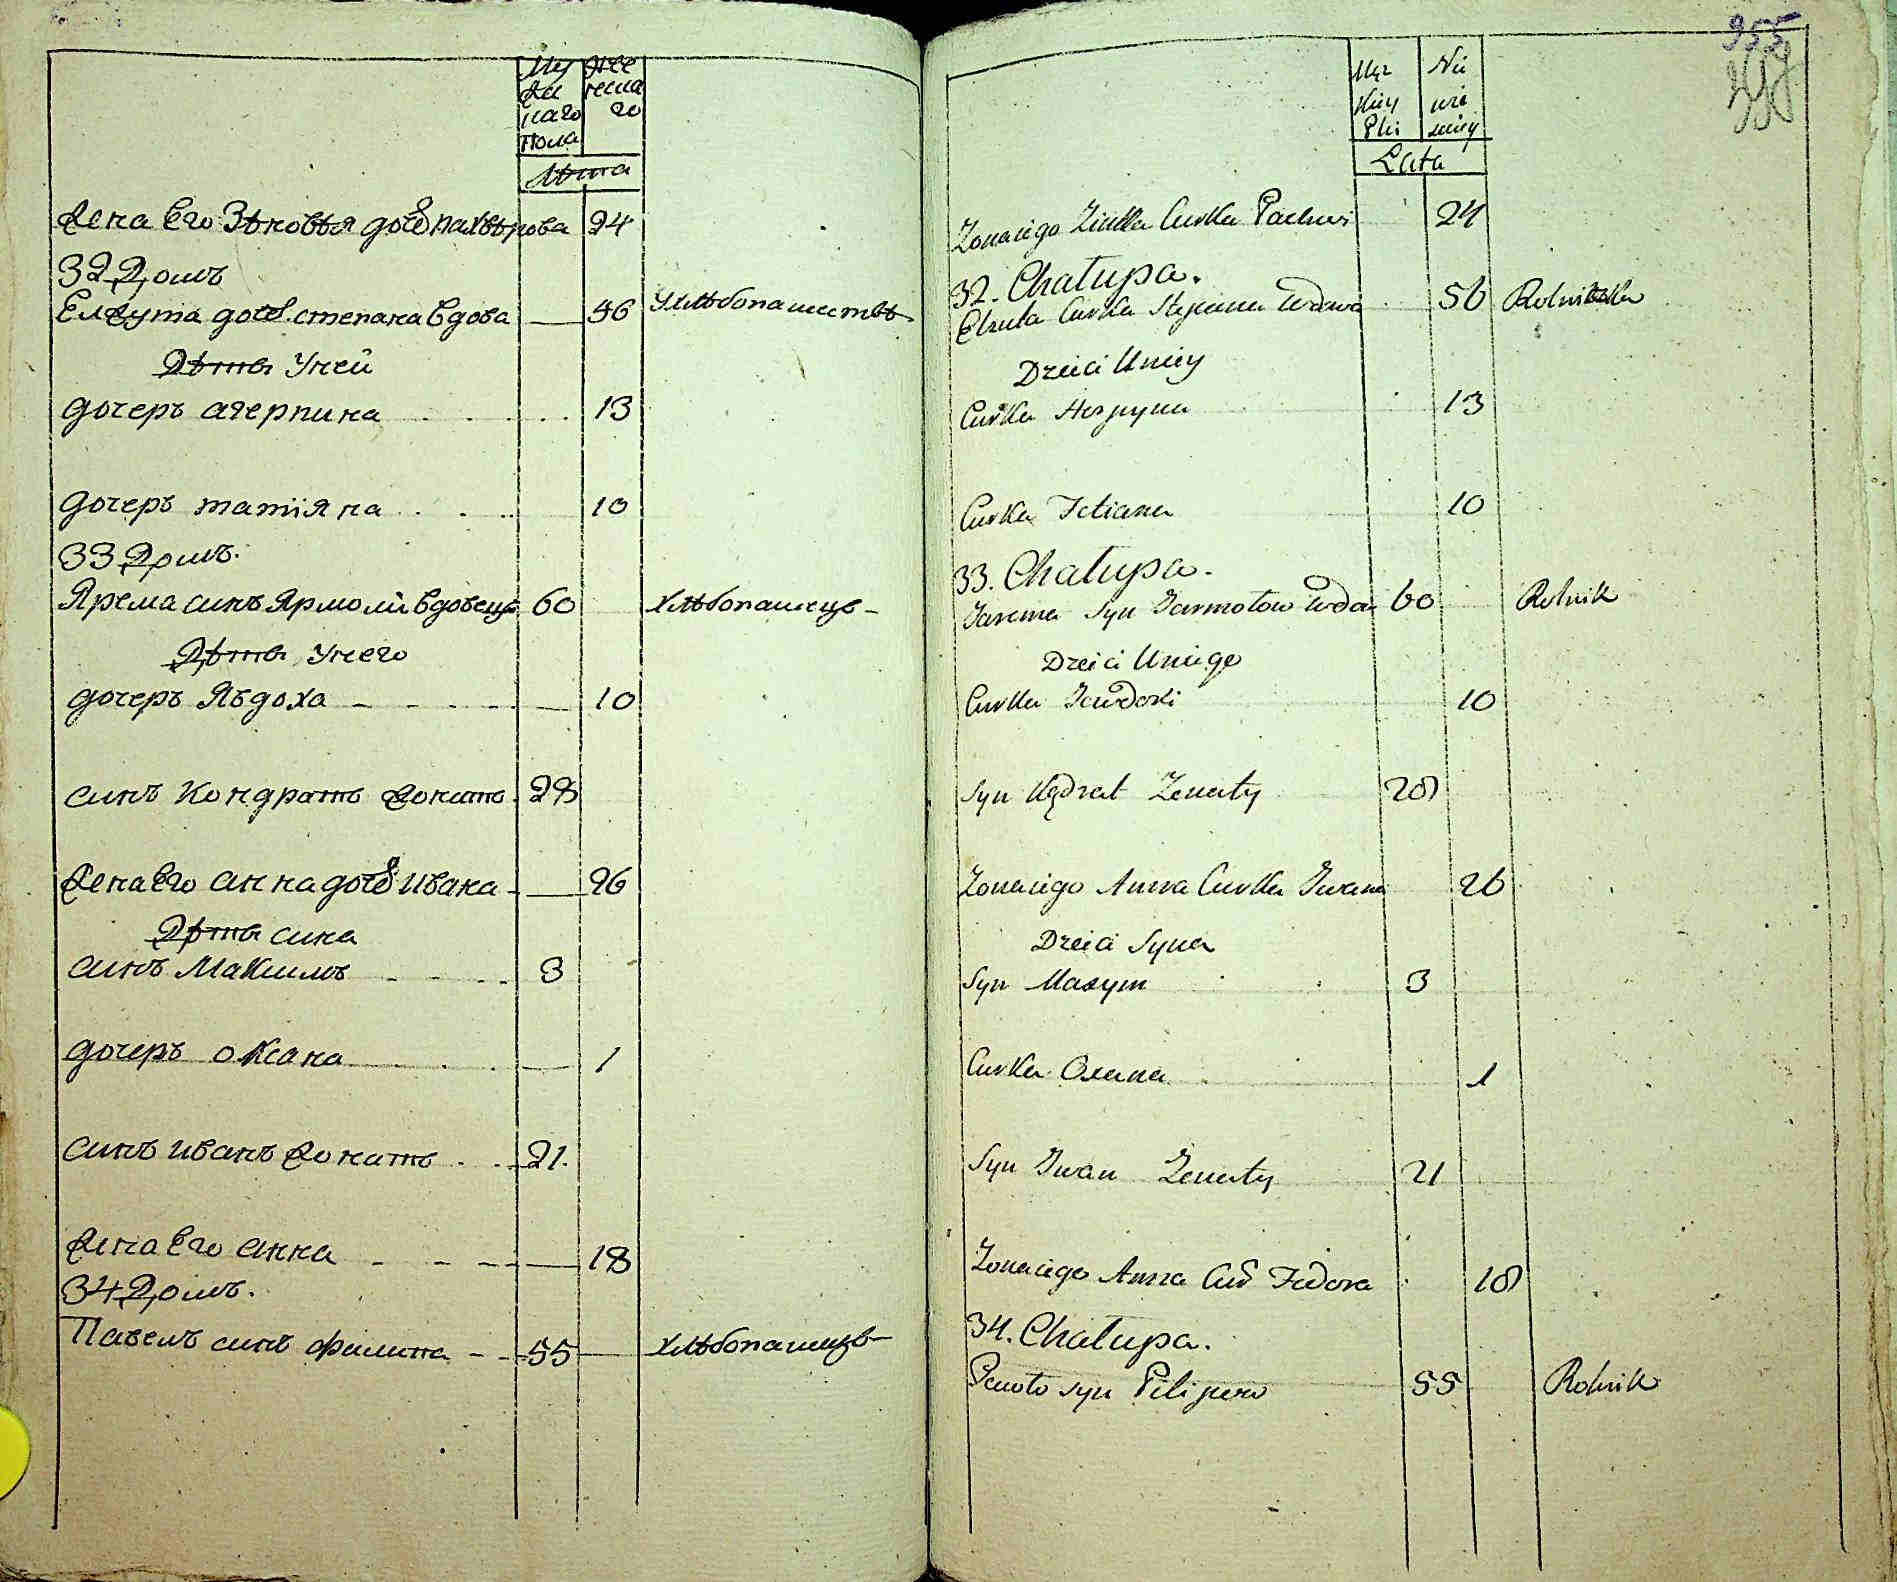 Му
жес
каго
пола
Же
нска
го
Лѣта
Жена Его Зѣновѣя дочь Пахвѣрова 24
32 Домъ
Елжута дочь степана вдова 56 У хлѣбопашествѣ
Дѣти У ней
дочеръ агерпина 13
дочеръ татіяна 10
33 Домъ.
Ярема синъ Ярмолы вдовецъ 60 хлѣбопашецъ
Дѣти У него
дочеръ Явдоха 10
синъ Кондратъ жонатъ 28
Жена Его анна дочь ивана 26
Дѣти сина
синъ Максимъ 3
дочеръ оксана 1
синъ иванъ жонатъ 21.
Жена Его анна 18
34 Домъ.
Павелъ синъ филипа 55 хлѣбопашецъ
355
Męz
kiey
Płci
Nie
wie
sciey
Lata
Zona iego Zinka Curka Pachwi 24
32. Chałupa.
Elzuta Curka Stepana Wdowa 56 Rolniczka
Dzieci U niey
Curka Horpyna 13
Curka Tetiana 10
33. Chałupa.
Jarema Syn Jarmołow Wdo 60 Rolnik
Dzieci U niego
Curka Jewdoki 10
Syn Kądrat Zenaty 28
Zona iego Anna Curka Iwana 26
Dzieci Syna
Syn Maxym 3
Curka Oxana 1
Syn Iwan Zenaty 21
Zona iego Anna Cur Fedora 18
34. Chałupa.
Pawło syn Pilipow 55 Rolnik